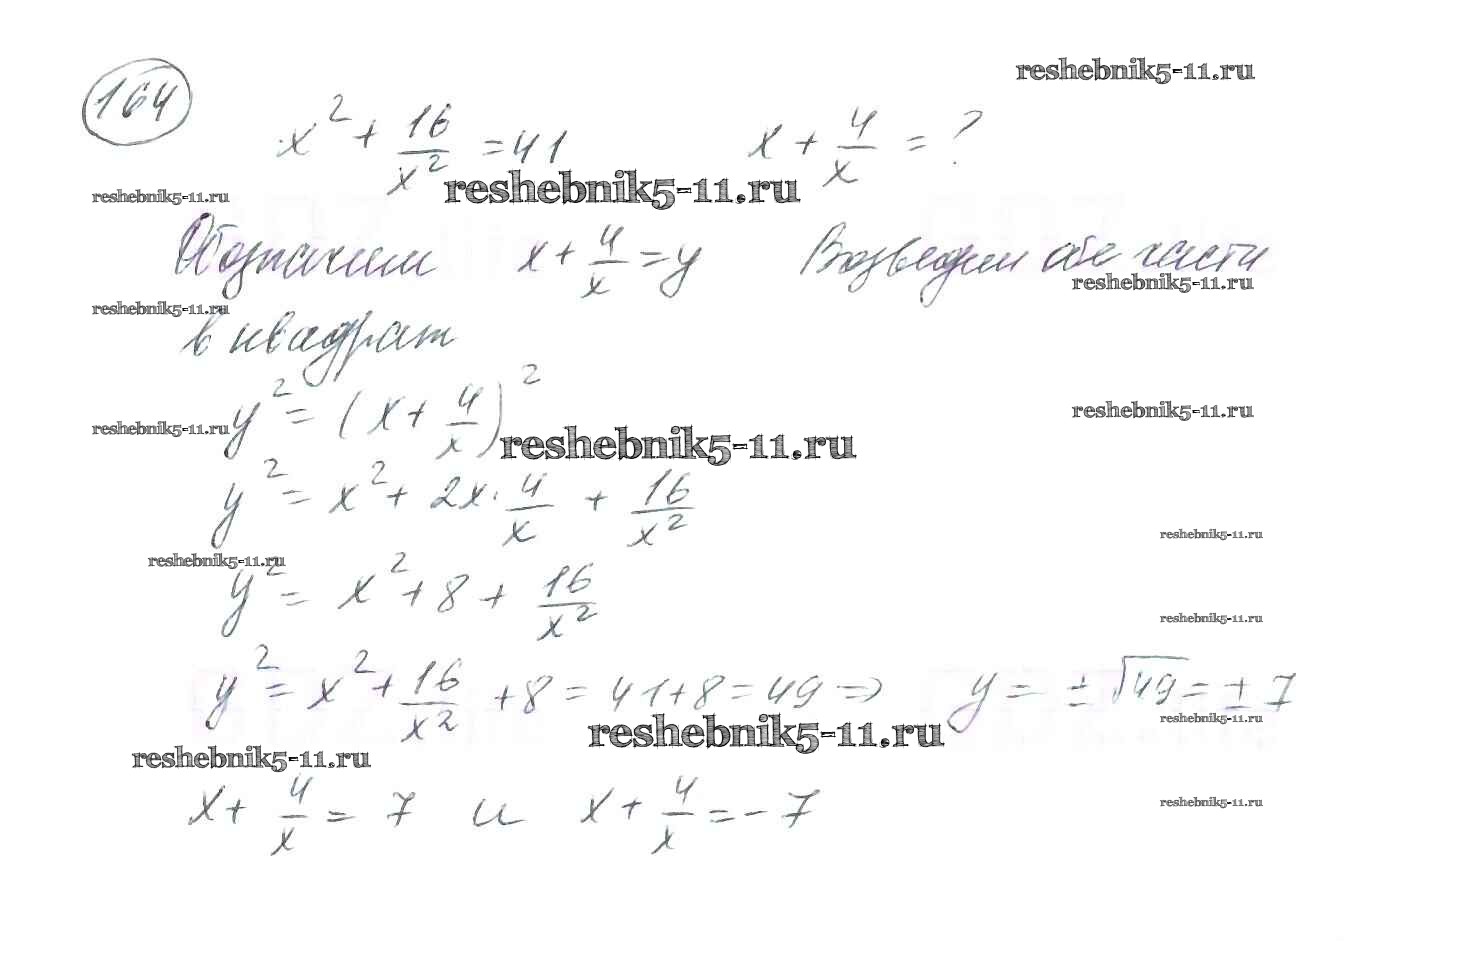 reshebnik5-11.ru
164
x² + 16/x² = 41 x + 4/x = ?
reshebnik5-11.ru reshebnik5-11.ru
Обозначим x + 4/x = y Возведем обе части
reshebnik5-11.ru
reshebnik5-11.ru
в квадрат
y² = (x + 4/x)²
reshebnik5-11.ru reshebnik5-11.ru reshebnik5-11.ru
y² = x² + 2x · 4/x + 16/x²
reshebnik5-11.ru
reshebnik5-11.ru
y² = x² + 8 + 16/x²
reshebnik5-11.ru
y² = x² + 16/x² + 8 = 41 + 8 = 49 => y = ± √49 = ± 7
reshebnik5-11.ru reshebnik5-11.ru
reshebnik5-11.ru
x + 4/x = 7 и x + 4/x = - 7
reshebnik5-11.ru